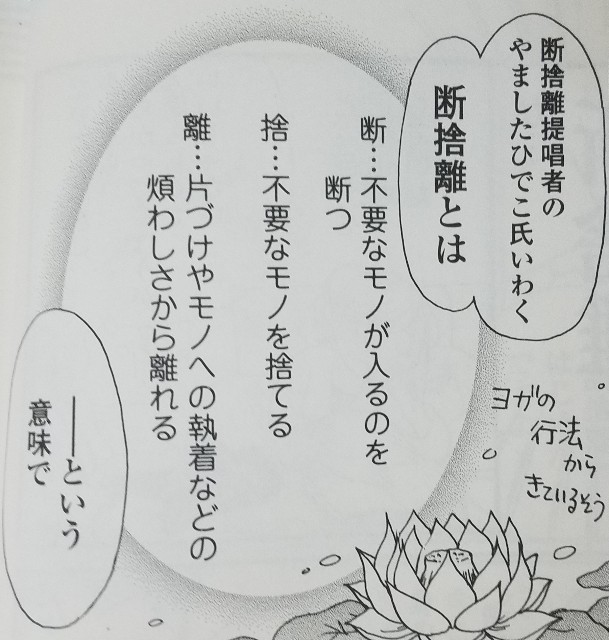 断捨離提唱者の
やましたひでこ氏いわく
断捨離とは
断…不要なモノが入るのを
断つ
捨…不要なモノを捨てる
離…片づけやモノへの執着などの
煩わしさから離れる
ヨガの
行法
から
きているそう
──という
意味で